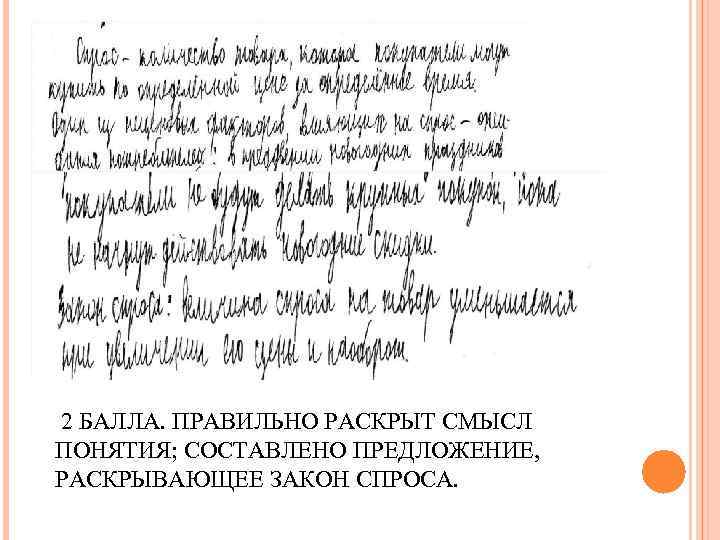 Спрос - количество товара, которое покупатели могут
купить по определённой цене за определённое время.
Один из неценовых факторов, влияющих на спрос - ожи-
дания потребителей: в преддверии новогодних праздников
покупатели не будут делать крупных покупок, пока
не начнут действовать новогодние скидки.
Закон спроса: величина спроса на товар уменьшается
при увеличении его цены и наоборот.
2 БАЛЛА. ПРАВИЛЬНО РАСКРЫТ СМЫСЛ
ПОНЯТИЯ; СОСТАВЛЕНО ПРЕДЛОЖЕНИЕ,
РАСКРЫВАЮЩЕЕ ЗАКОН СПРОСА.